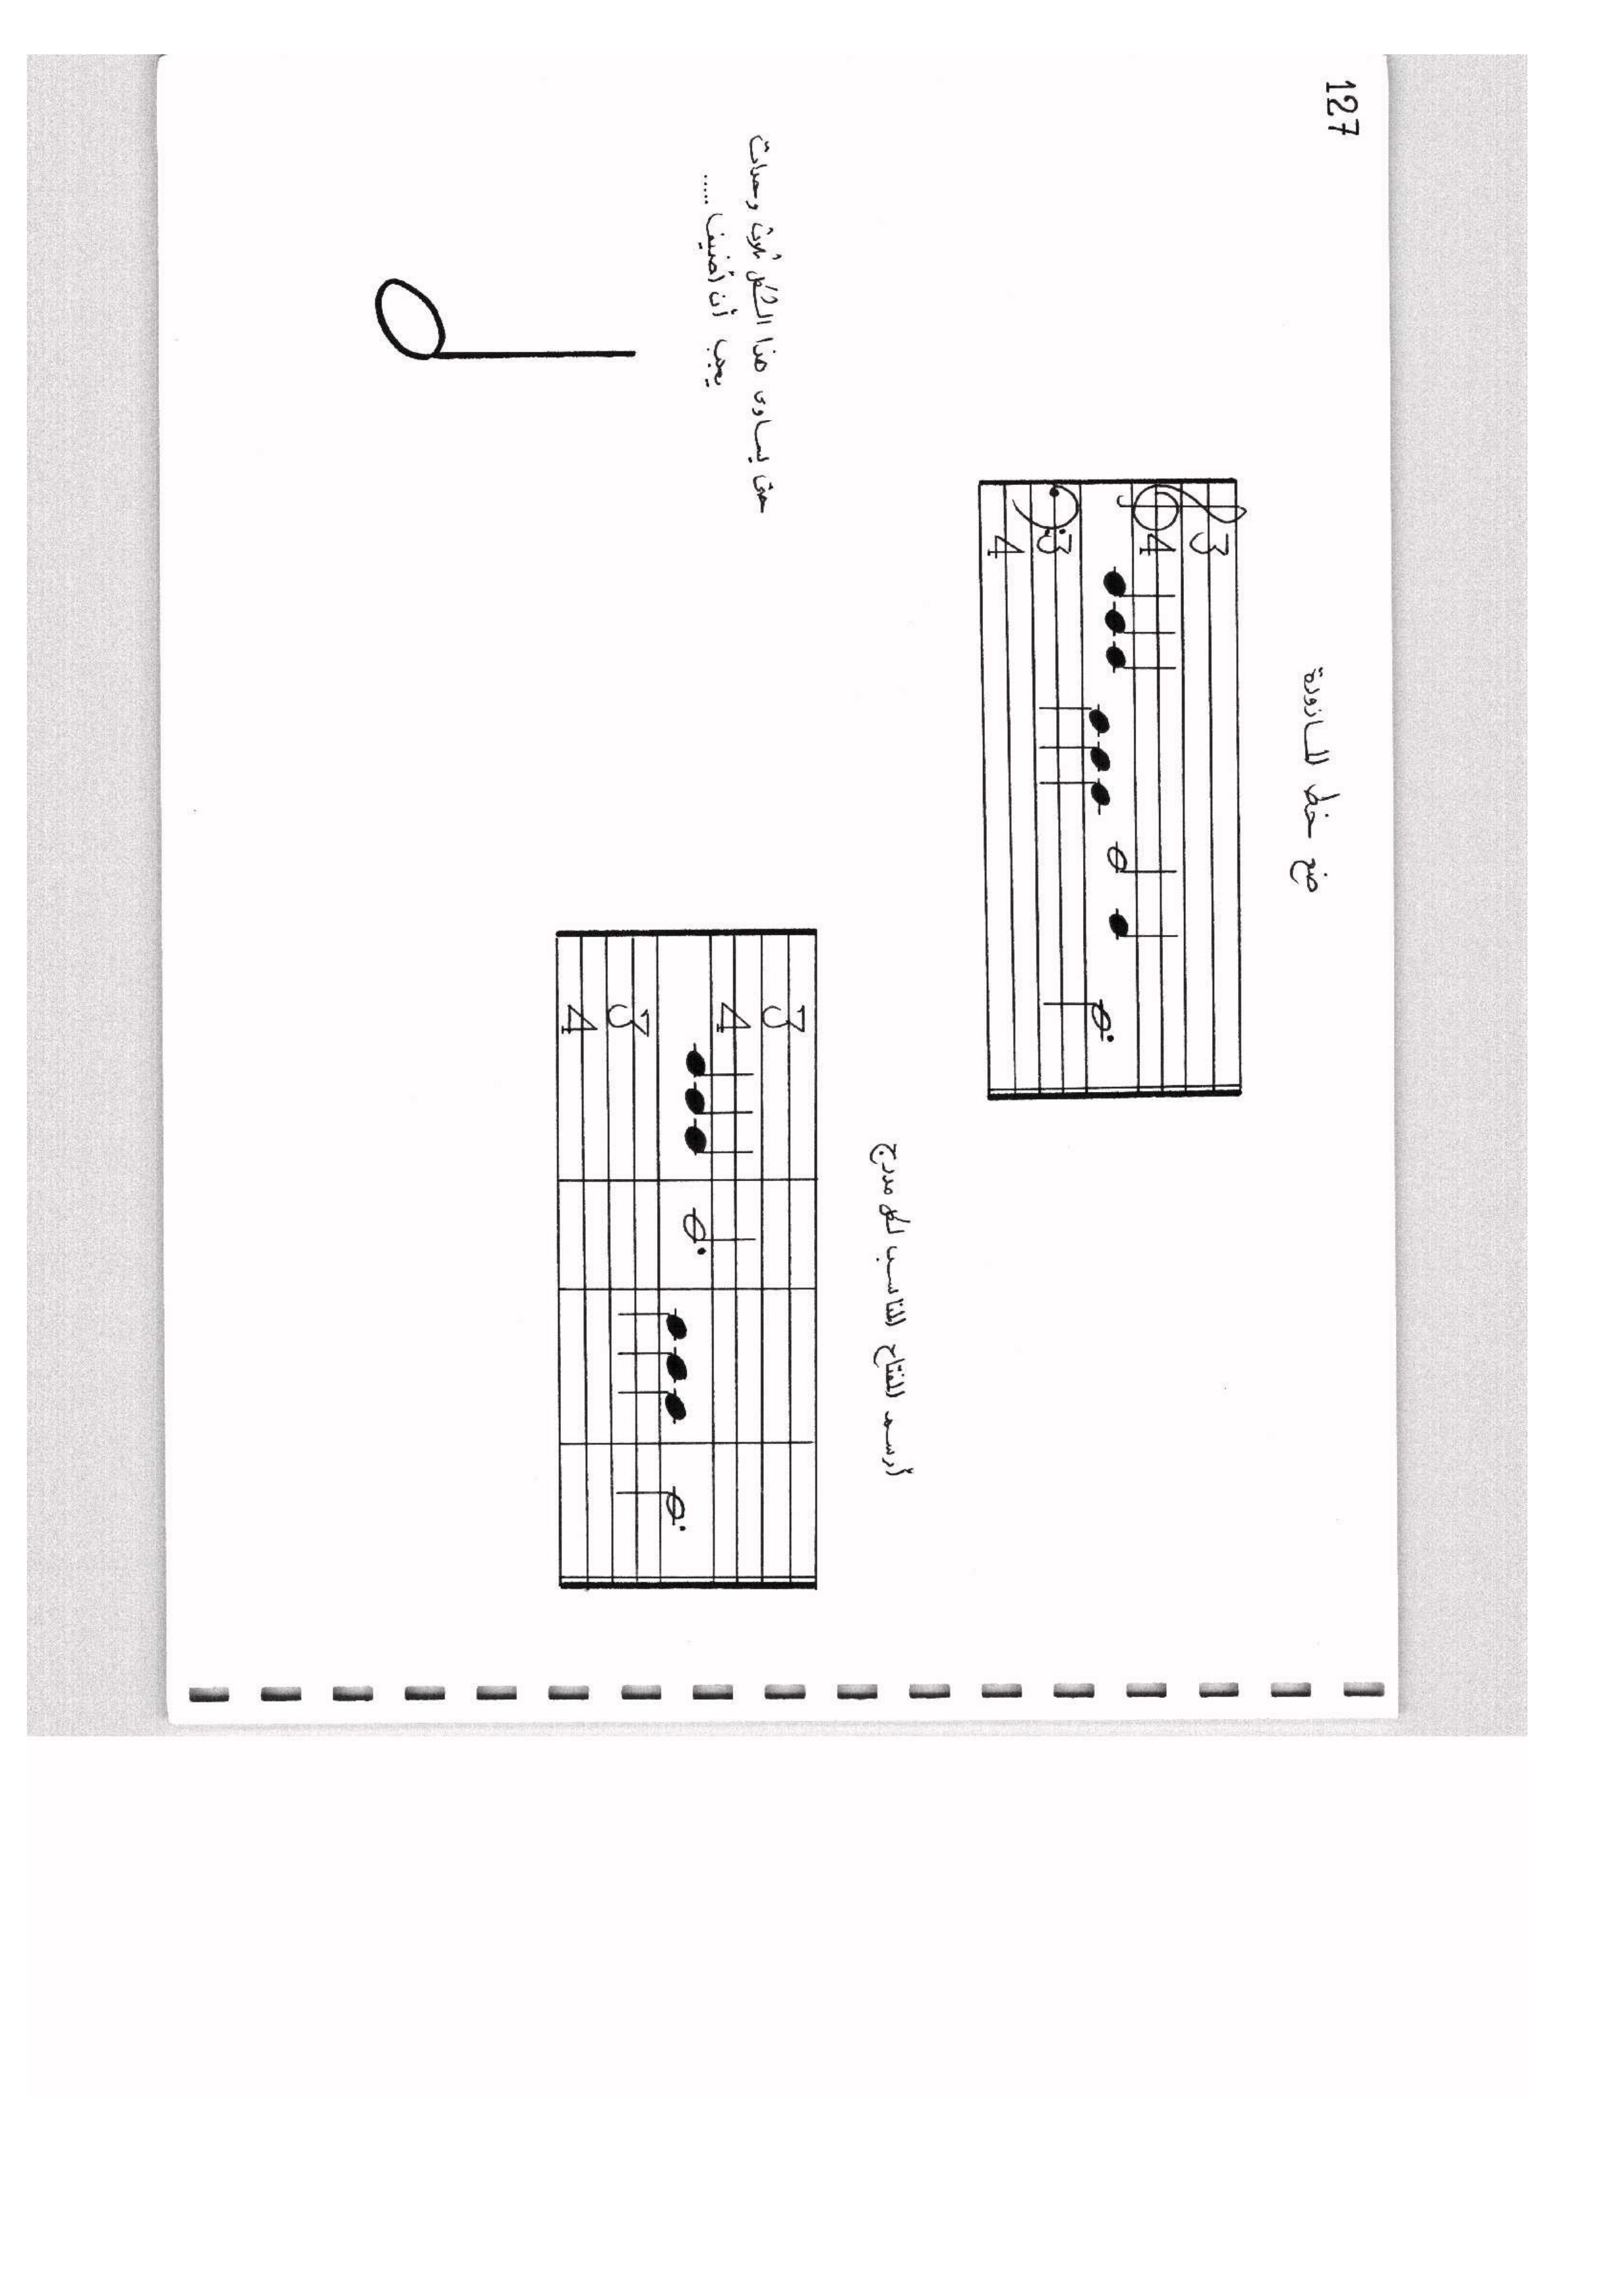 127
ضع خط المازورة
3
4
3
4
أرسم المفتاح المناسب لكل مدرج
3
4
3
4
حتى يساوى هذا الشكل ثلاث وحدات
يجب أن أضيف .....